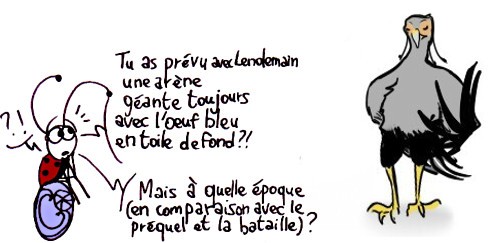 ?!
Tu as prévu avec Lenolemain
une arène
géante toujours
avec l'oeuf bleu
en toile de fond?!
Mais à quelle époque
(en comparaison avec le
préquel et la bataille)?